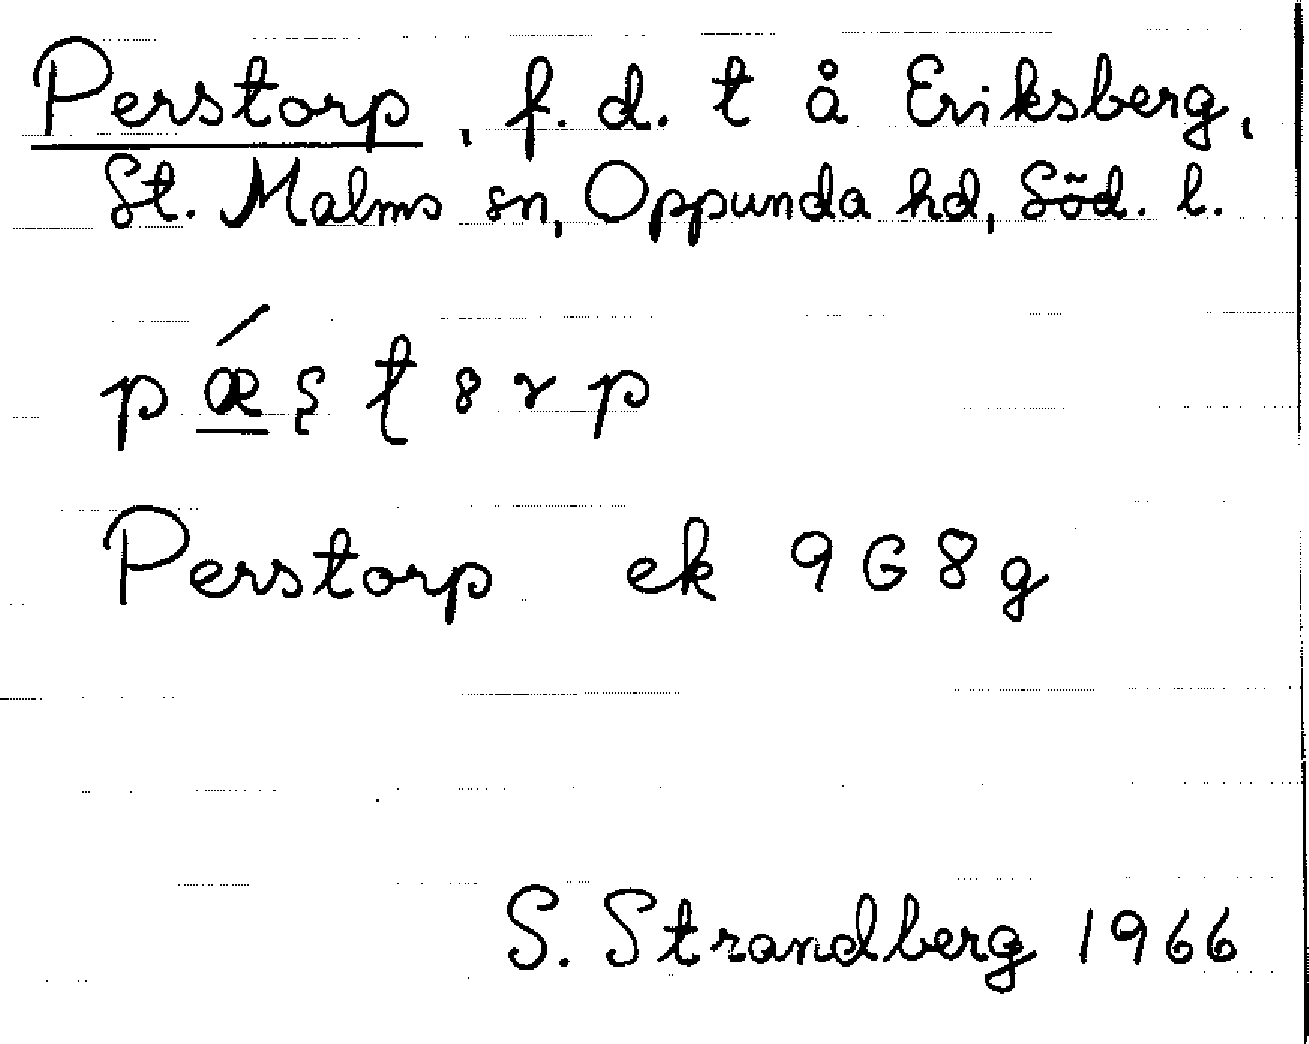 Perstorp, f. d. t å Eriksberg,
St. Malms sn, Oppunda hd, Söd. l.
pǽʂʈ8rp
Perstorp ek 9G8g
S. Strandberg 1966